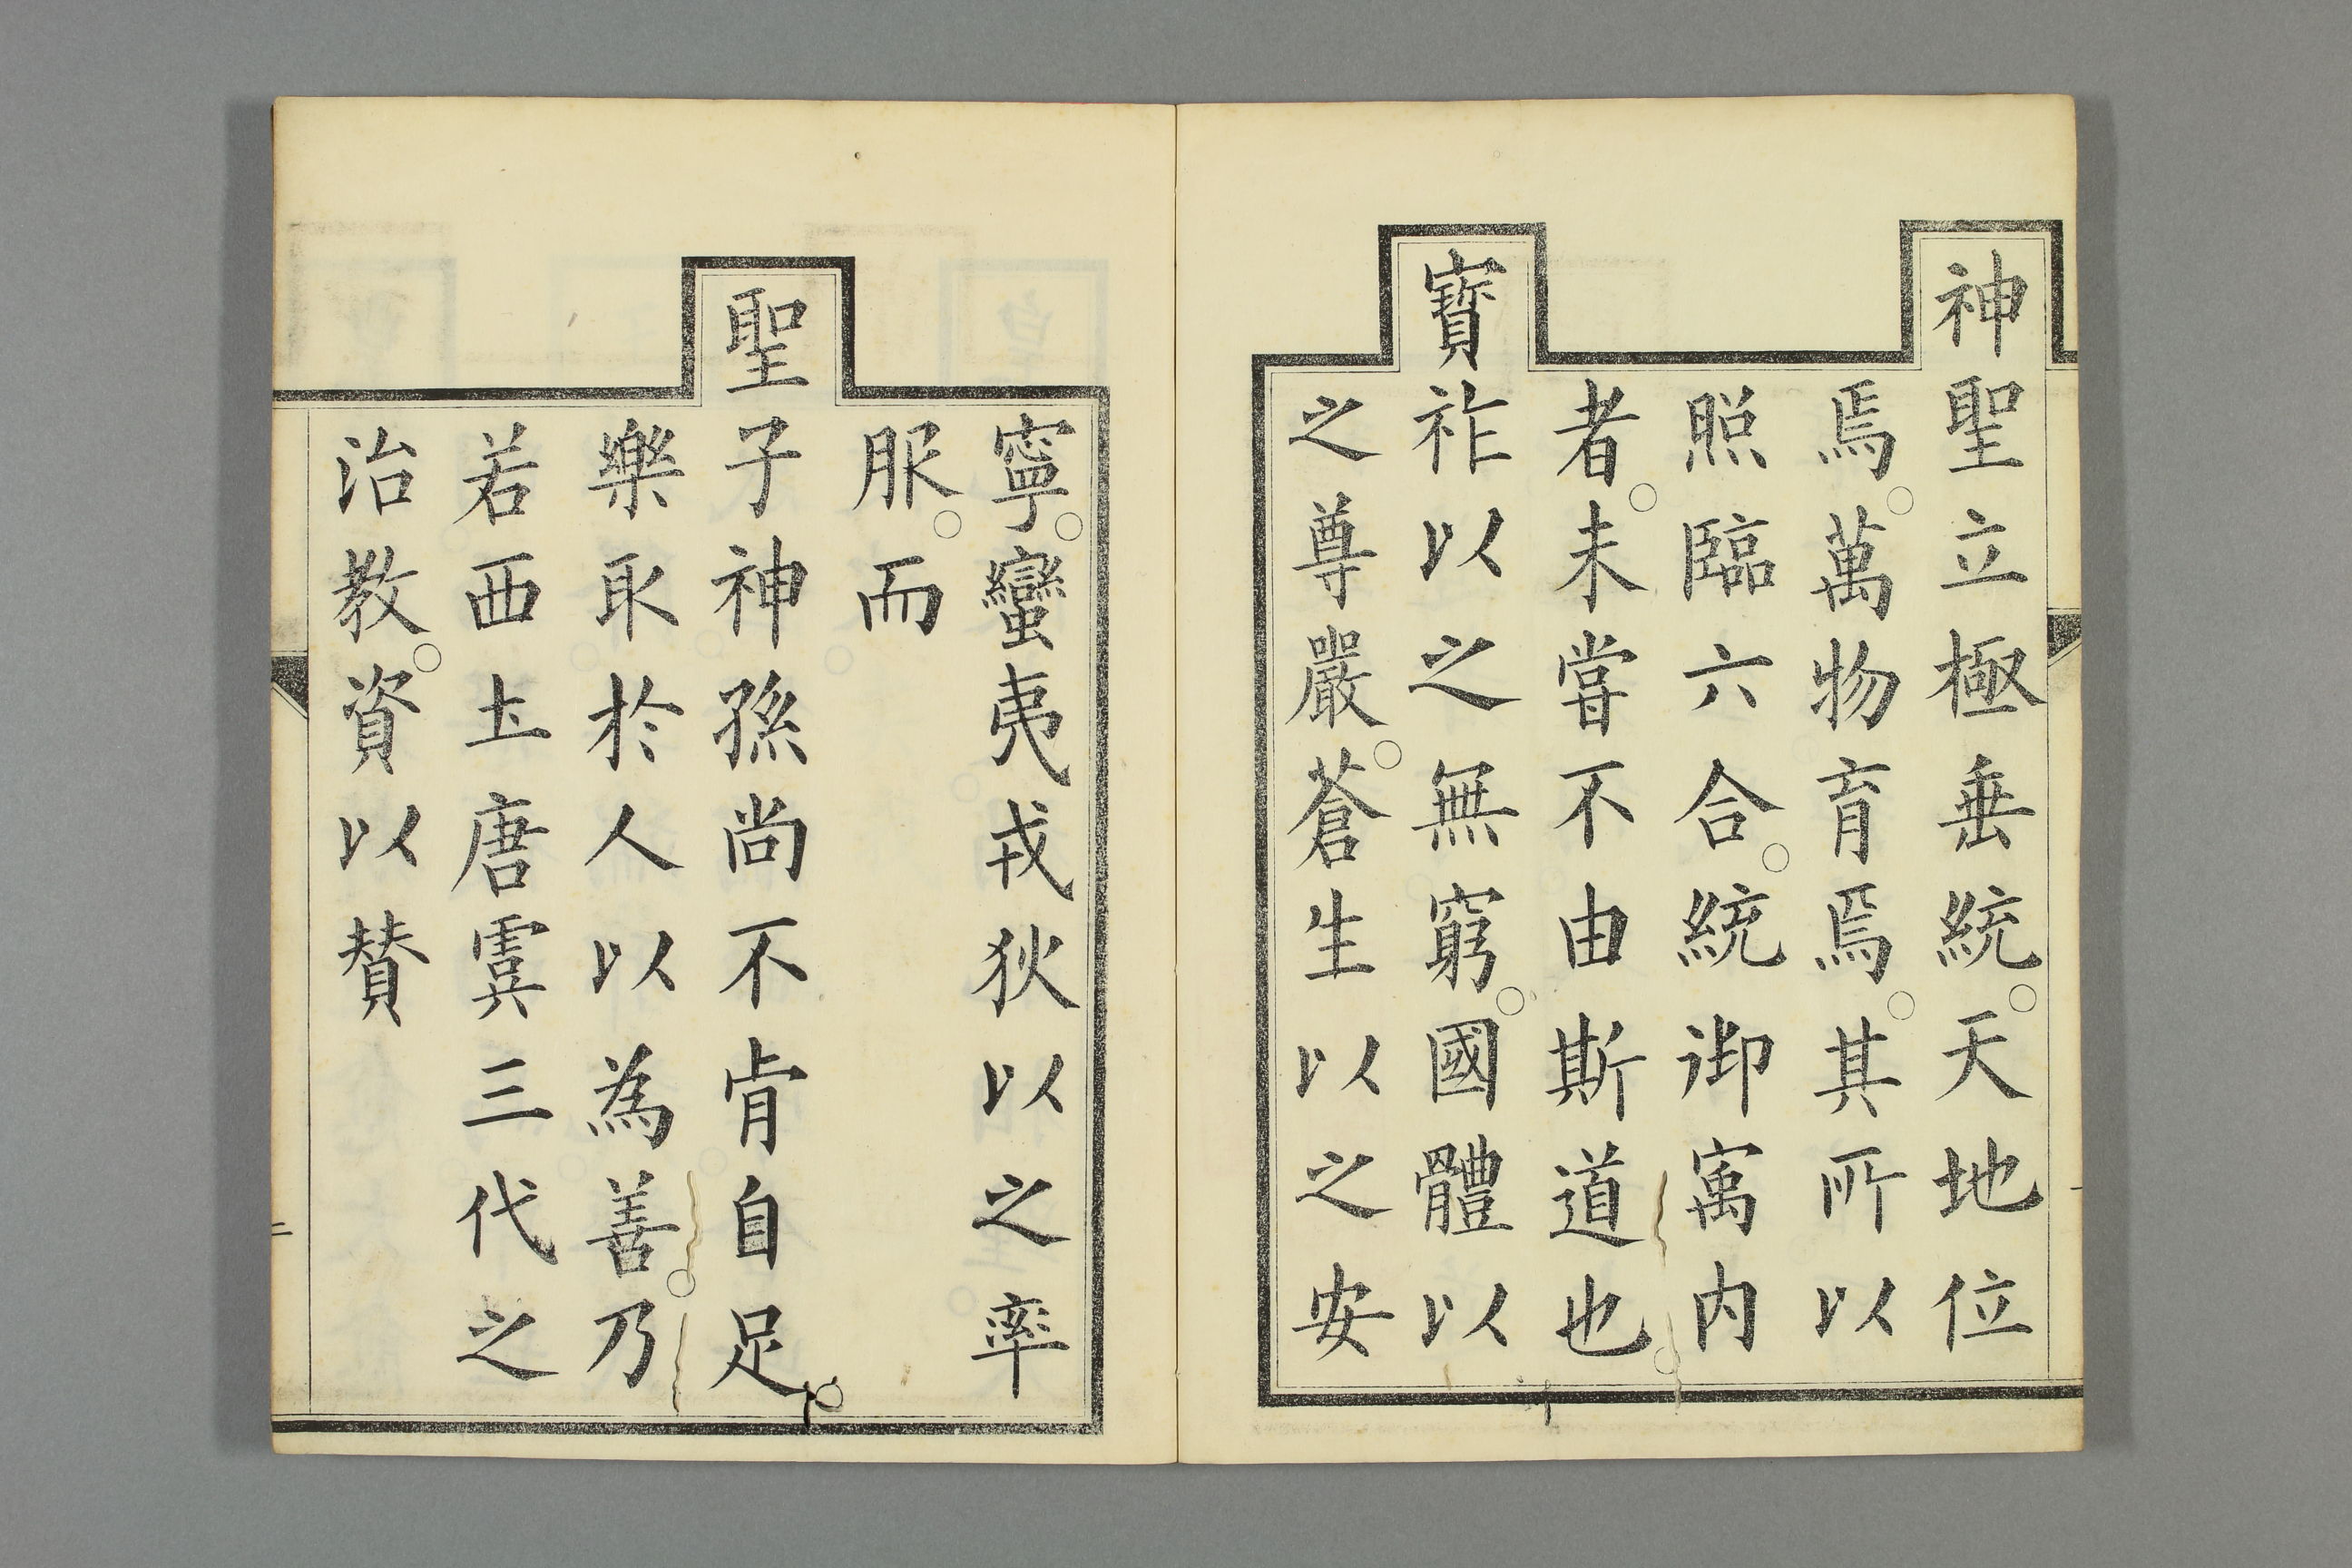 神聖立極垂統○天地位
焉○萬物育焉○其所以
照臨六合○統御寓内
者○未嘗不由斯道也○
寶祚以之無窮○國體以
之尊嚴○蒼生以之安
寧○蠻夷戎狄以之率
服○而
聖子神孫尚不肯自足○
樂取於人以為善○乃
若西圡唐虞三代之
治教○資以賛